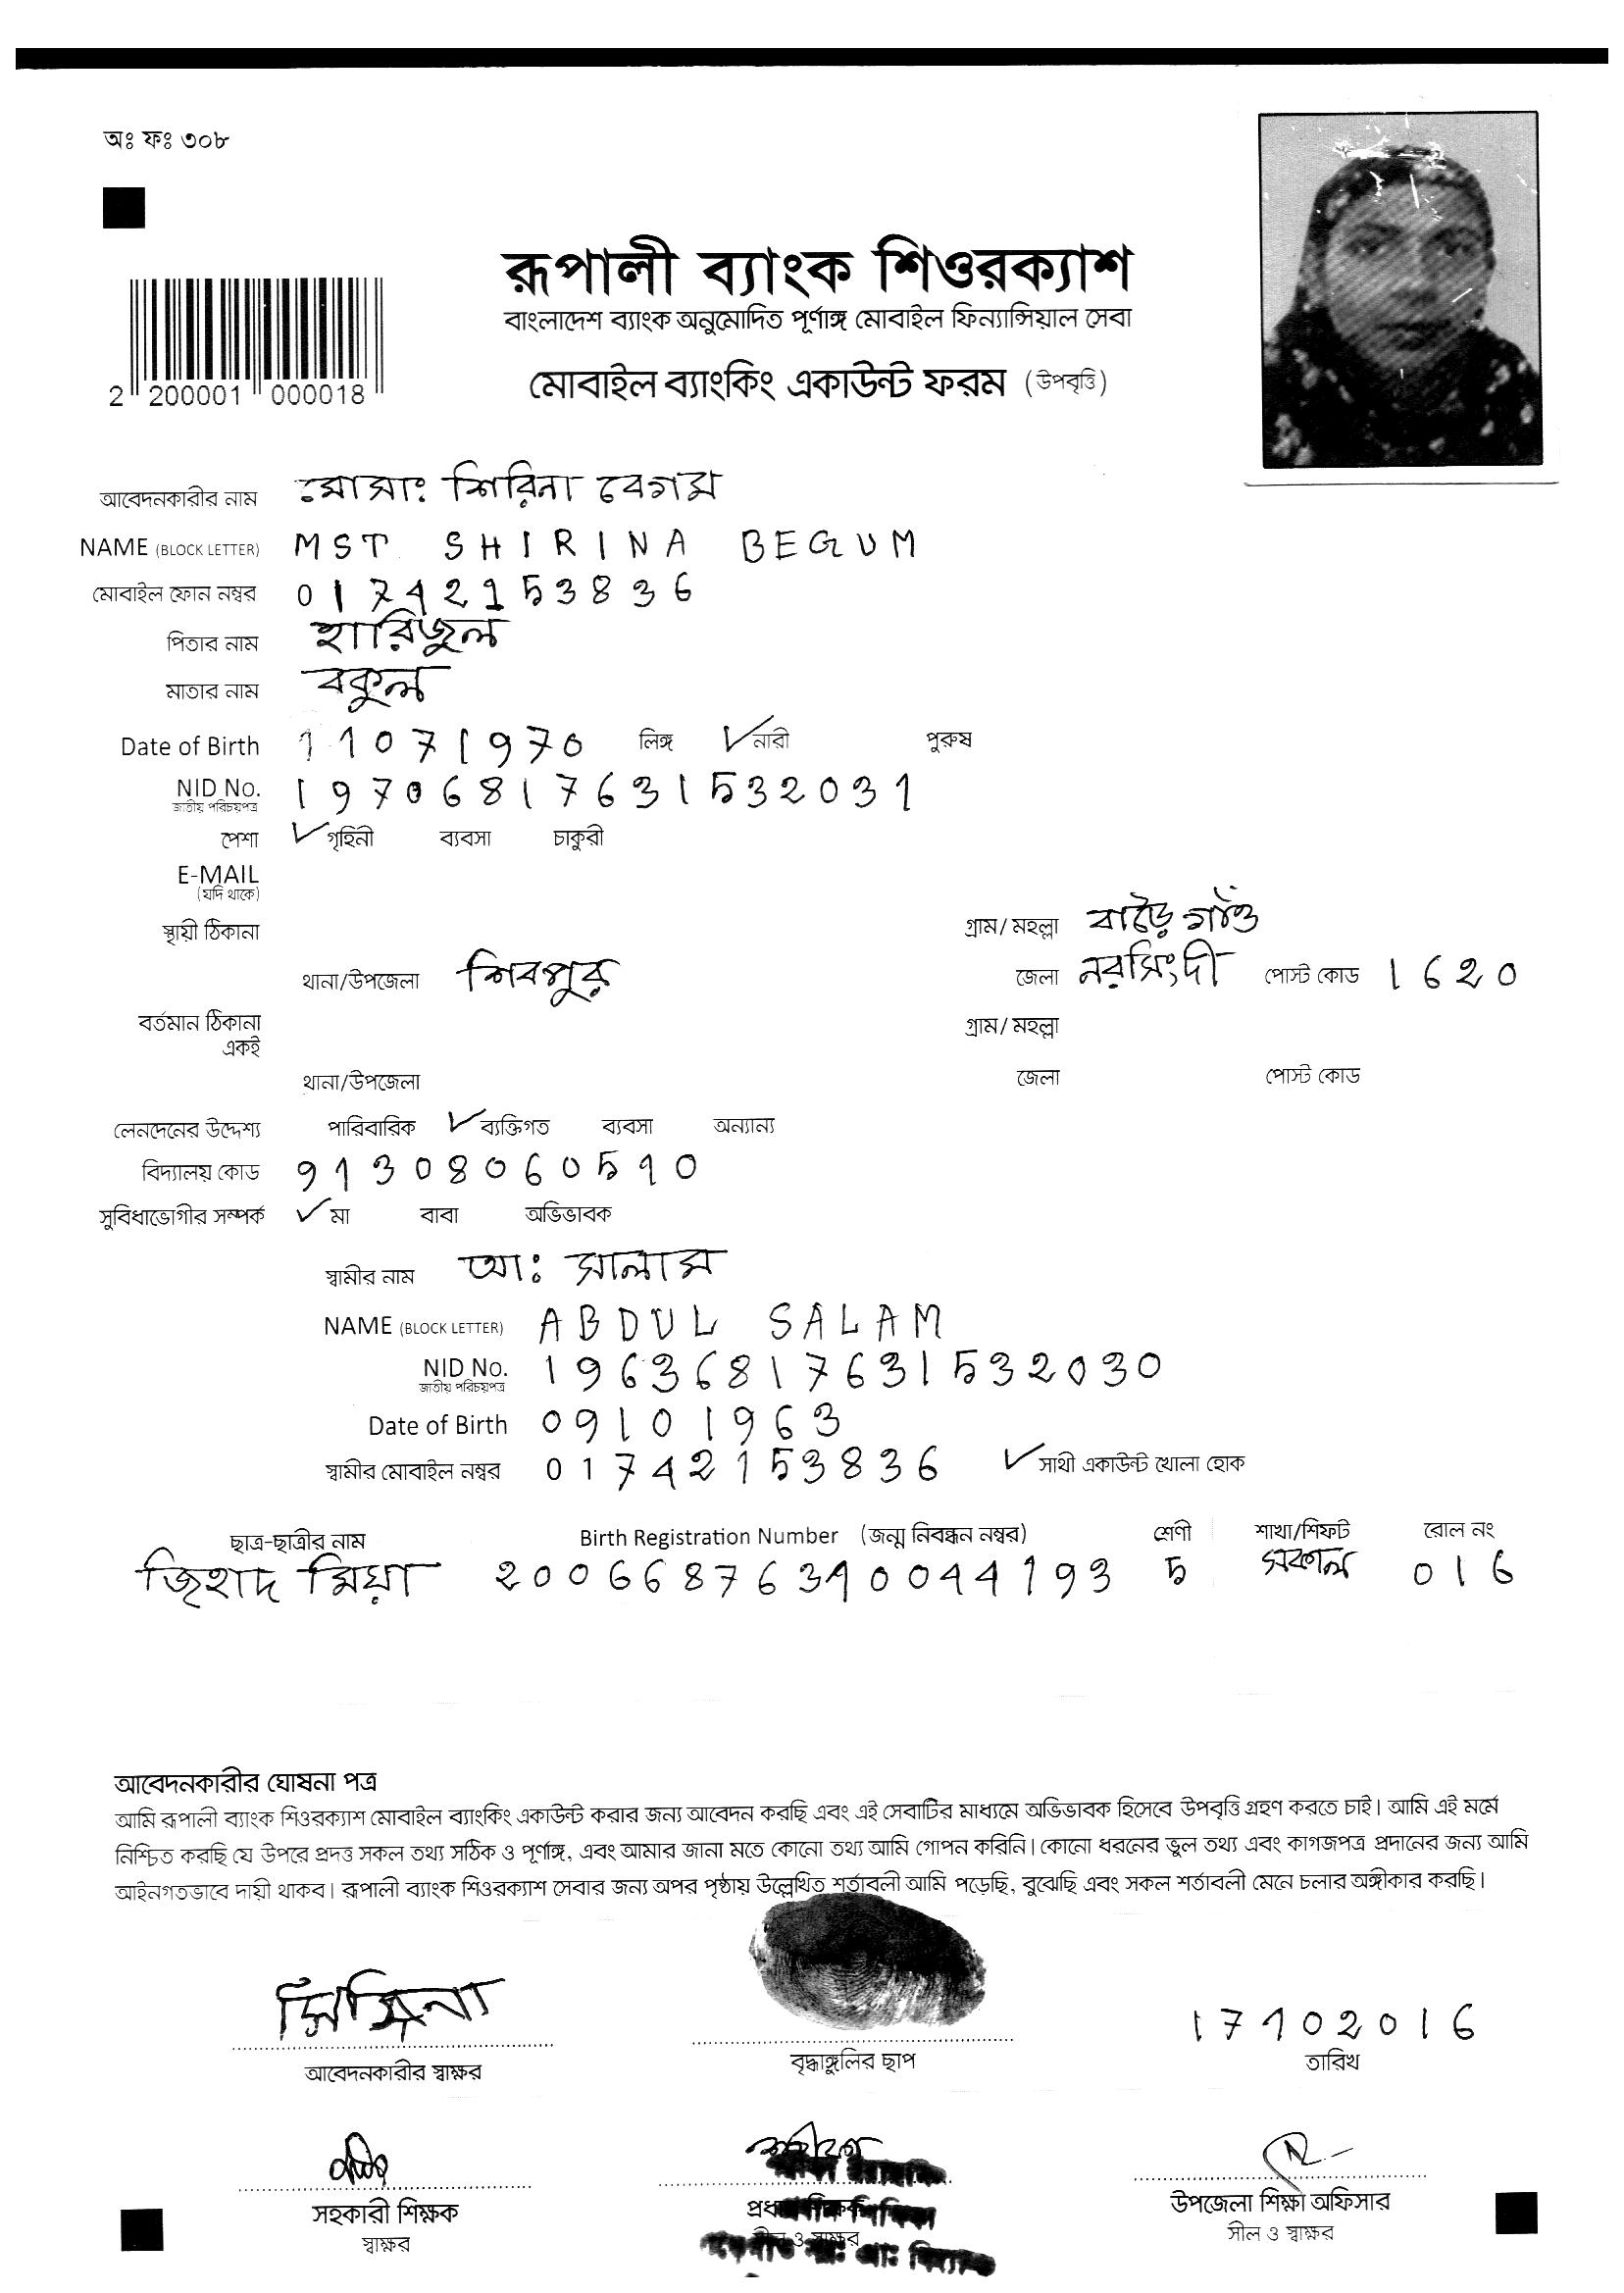 অঃ ফঃ ৩০৮
রূপালী ব্যাংক শিওরক্যাশ
বাংলাদেশ ব্যাংক অনুমোদিত পূর্ণাঙ্গ মোবাইল ফিন্যান্সিয়াল সেবা
মোবাইল ব্যাংকিং একাউন্ট ফরম (উপবৃত্তি)
2 200001 000018
আবেদনকারীর নাম মোসাঃ শিরিনা বেগম
NAME (BLOCK LETTER) MST SHIRINA BEGUM
মোবাইল ফোন নম্বর 01742153836
পিতার নাম হারিজুল
মাতার নাম বকুল
Date of Birth 11071970 লিঙ্গ ✓নারী পুরুষ
NID No. 19706817631532031
জাতীয় পরিচয়পত্র
পেশা ✓গৃহিনী ব্যবসা চাকুরী
E-MAIL
(যদি থাকে)
স্থায়ী ঠিকানা গ্রাম/ মহল্লা বাড়ৈগাঁও
থানা/উপজেলা শিবপুর জেলা নরসিংদী পোস্ট কোড 1620
বর্তমান ঠিকানা গ্রাম/ মহল্লা
একই
থানা/উপজেলা জেলা পোস্ট কোড
লেনদেনের উদ্দেশ্য পারিবারিক ✓ব্যক্তিগত ব্যবসা অন্যান্য
বিদ্যালয় কোড 91308060510
সুবিধাভোগীর সম্পর্ক ✓মা বাবা অভিভাবক
স্বামীর নাম আঃ সালাম
NAME (BLOCK LETTER) ABDUL SALAM
NID No. 19636817631532030
জাতীয় পরিচয়পত্র
Date of Birth 09101963
স্বামীর মোবাইল নম্বর 01742153836 ✓সাথী একাউন্ট খোলা হোক
ছাত্র-ছাত্রীর নাম Birth Registration Number (জন্ম নিবন্ধন নম্বর) শ্রেণী শাখা/শিফট রোল নং
জিহাদ মিয়া 20066876310044193 5 সকাল 016
আবেদনকারীর ঘোষনা পত্র
আমি রূপালী ব্যাংক শিওরক্যাশ মোবাইল ব্যাংকিং একাউন্ট করার জন্য আবেদন করছি এবং এই সেবাটির মাধ্যমে অভিভাবক হিসেবে উপবৃত্তি গ্রহণ করতে চাই। আমি এই মর্মে
নিশ্চিত করছি যে উপরে প্রদত্ত সকল তথ্য সঠিক ও পূর্ণাঙ্গ, এবং আমার জানা মতে কোনো তথ্য আমি গোপন করিনি। কোনো ধরনের ভুল তথ্য এবং কাগজপত্র প্রদানের জন্য আমি
আইনগতভাবে দায়ী থাকব। রূপালী ব্যাংক শিওরক্যাশ সেবার জন্য অপর পৃষ্ঠায় উল্লেখিত শর্তাবলী আমি পড়েছি, বুঝেছি এবং সকল শর্তাবলী মেনে চলার অঙ্গীকার করছি।
17102016
আবেদনকারীর স্বাক্ষর বৃদ্ধাঙ্গুলির ছাপ তারিখ
সহকারী শিক্ষক প্রধান শিক্ষক উপজেলা শিক্ষা অফিসার
স্বাক্ষর সীল ও স্বাক্ষর সীল ও স্বাক্ষর